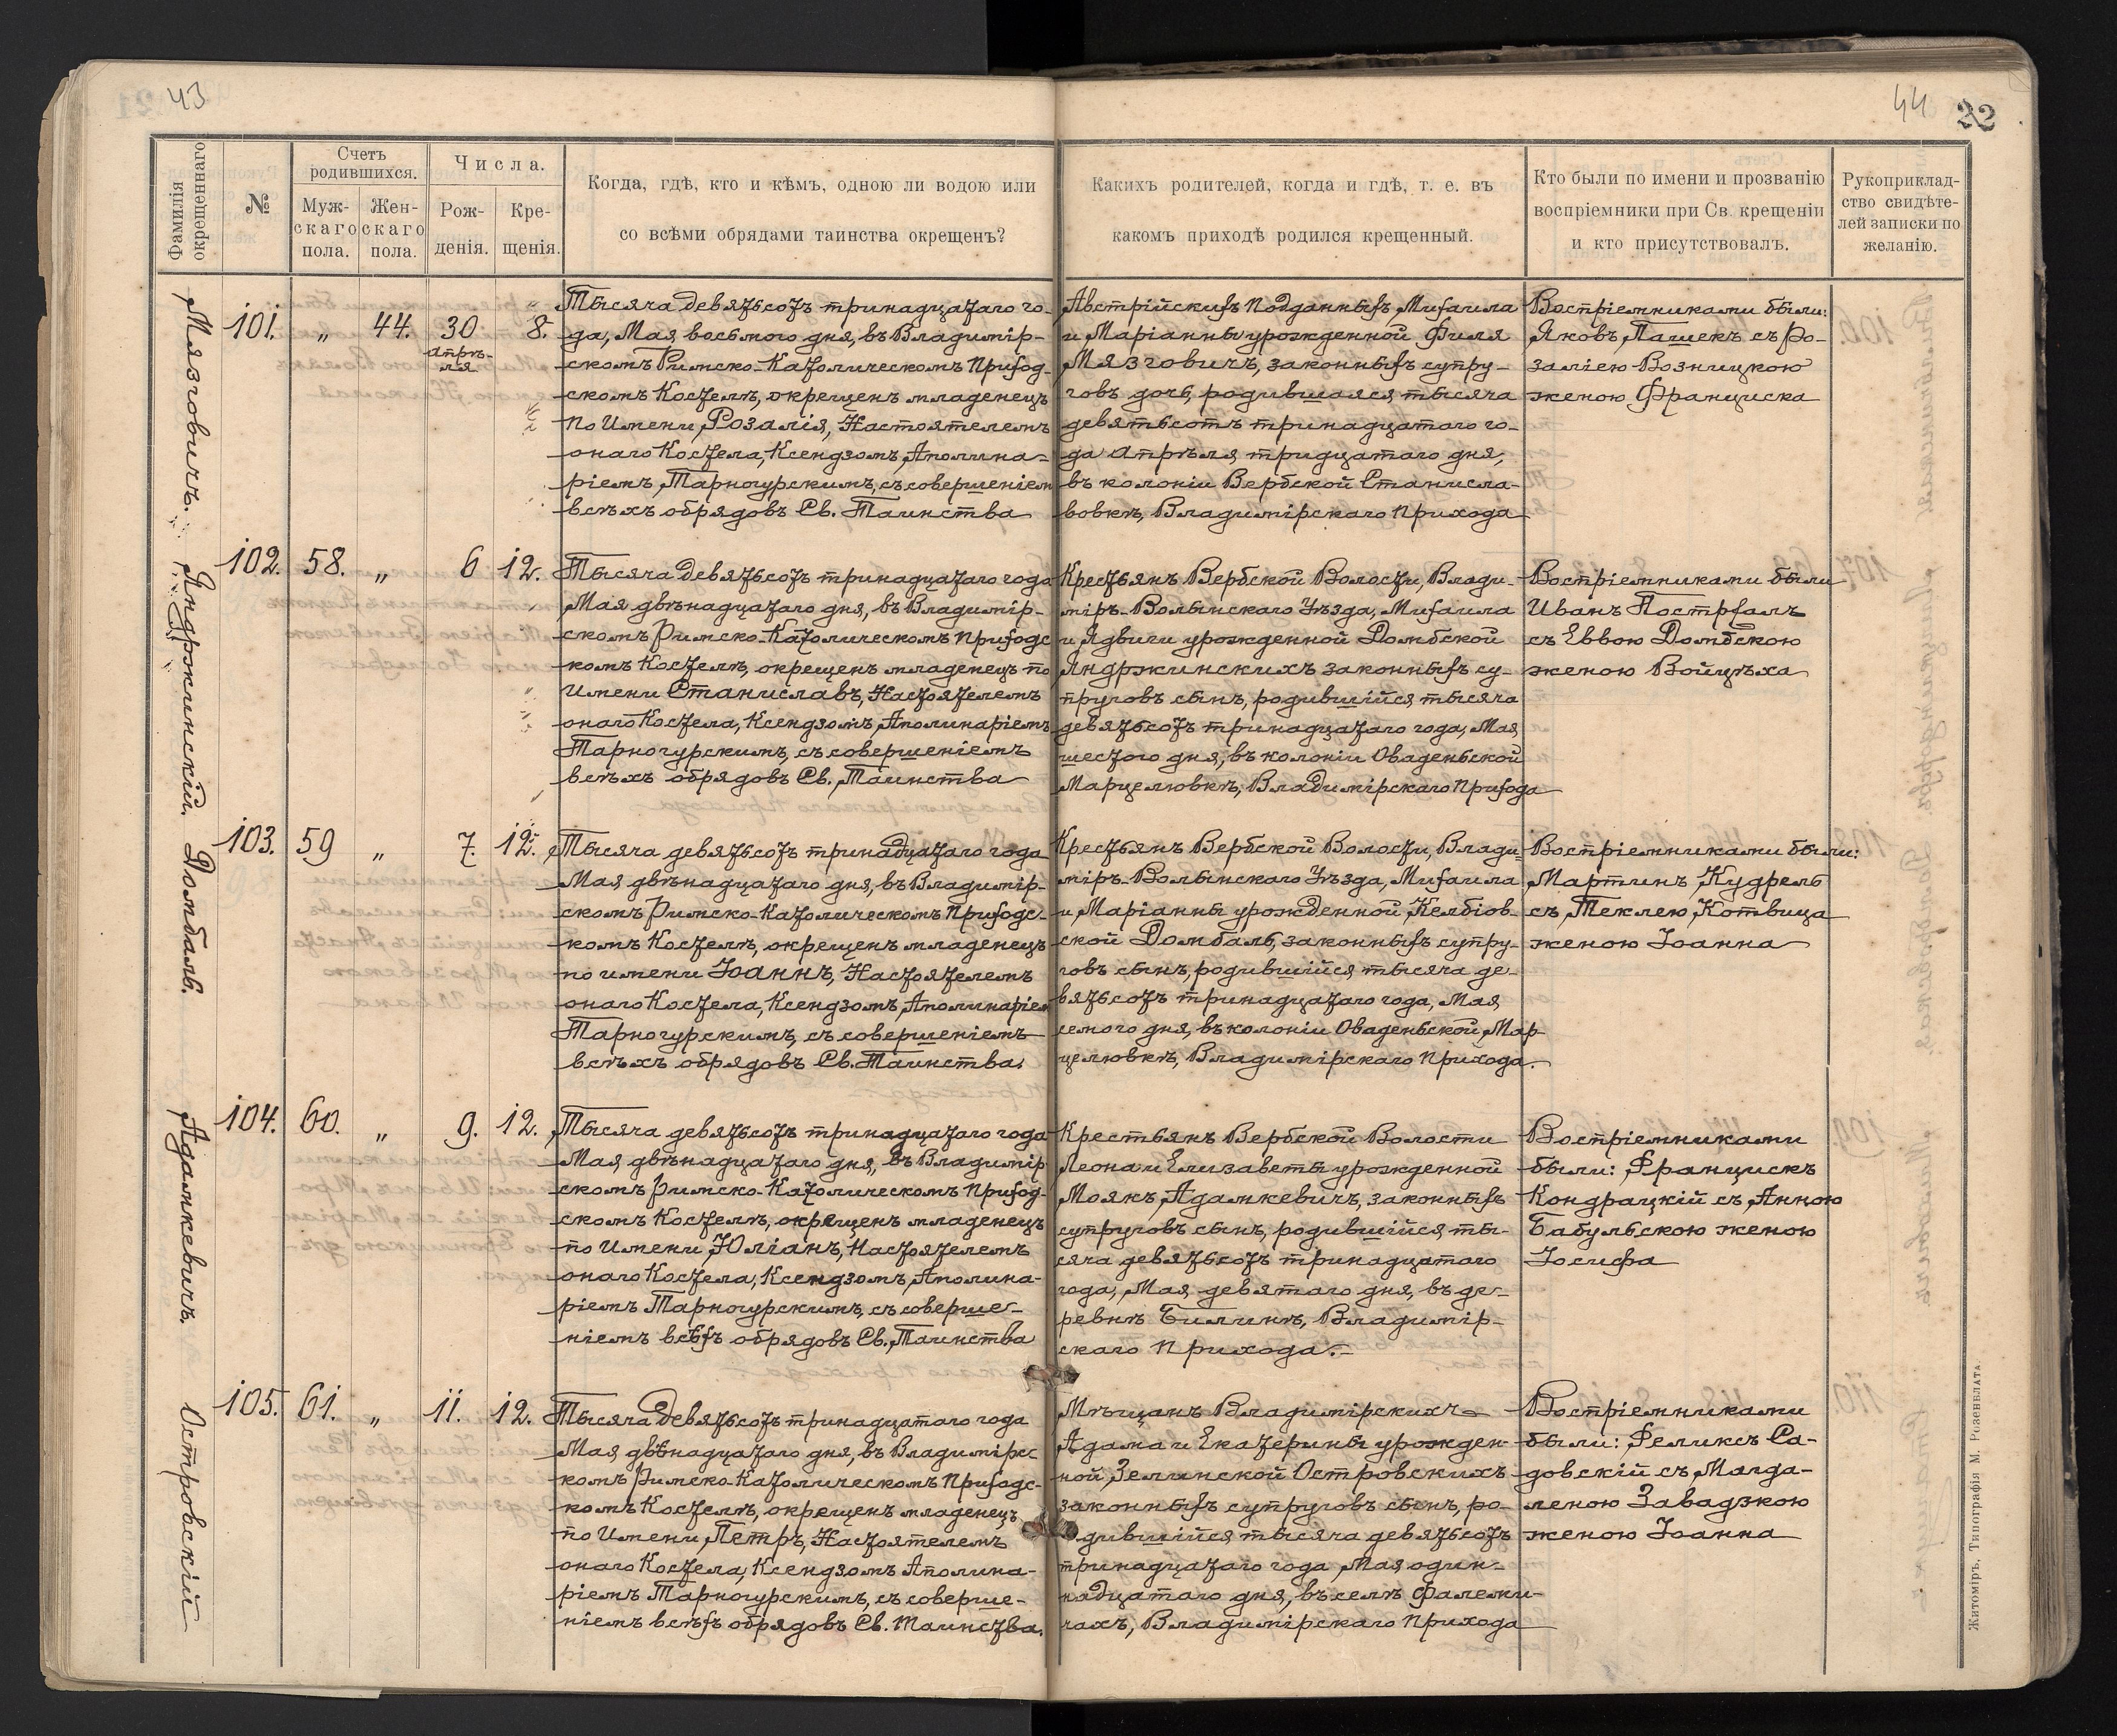 43
44
22
Фамилія окрещеннаго
№
Счетъ родившихся.
Муж-
скаго
пола.
Жен-
скаго
пола.
Числа.
Рож-
денія.
Кре-
щенія.
Когда, гдѣ, кто и кѣмъ, одною ли водою или
со всѣми обрядами таинства окрещенъ?
Какихъ родителей, когда и гдѣ, т. е. въ
какомъ приходѣ родился крещенный.
Кто были по имени и прозванію
воспріемники при Св. крещеніи
и кто присутствовалъ.
Рукоприклад-
ство свидѣте-
лей записки по
желанію.
Мязговичъ.
101. „ 44. 30 апрѣ-
ля 8.
Тысяча девятьсотъ тринадцатаго го-
да, Мая, восьмого дня, въ Владимір-
скомъ Римско-Католическомъ Приход-
скомъ Костелѣ, окрещенъ младенецъ
по имени Розалія, Настоятелемъ
онаго Костела, Ксендзомъ Аполина-
ріемъ Тарногурскимъ, съ совершеніем
всѣхъ обрядовъ Св. Таинства
Австрійскихъ подданныхъ, Михаила
и Маріанны урожденной Филя
Мязговичъ, законныхъ супру-
говъ дочь, родившаяся тысяча
девятьсотъ тринадцатаго го-
да апрѣля тридцатаго дня,
въ колоніи Вербской Станисла-
вовкѣ, Владимірскаго Прихода
Воспріемниками были:
Яковъ Пашекъ съ Ро-
заліею Возницкою
женою Франциска
Яндржинскій.
102. 58. „ 6 12.
Тысяча девятьсотъ тринадцатаго года
Мая двѣнадцатаго дня, въ Владимір-
скомъ Римско-Католическомъ Приходс
комъ Костелѣ, окрещенъ младенецъ по
имени Станиславъ, Настоятелемъ
онаго Костела, Ксендзомъ Аполинаріемъ
Тарногурскимъ, съ совершеніемъ
всѣхъ обрядовъ Св. Таинства
Крестьянъ Вербской Волости, Влади-
міръ-Волынскаго Уѣзда, Михаила
и Ядвиги урожденной Домбской
Яндржинскихъ законныхъ су-
пруговъ сынъ, родившійся тысяча
девятьсотъ тринадцатаго года, Мая
шестого дня, въ колоніи Оваденьской
Марцелювкѣ, Владимірскаго Прихода
Воспріемниками были
Иванъ Пострхалъ
съ Еввою Домбскою
женою Войцѣха
Домбаль.
103. 59 „ 7. 12.
Тысяча девятьсотъ тринадцатаго года
Мая двѣнадцатаго дня, въ Владимір-
скомъ Римско-Католическомъ Приходс-
комъ Костелѣ, окрещенъ младенецъ
по имени Іоаннъ, Настоятелемъ
онаго Костела, Ксендзомъ Аполинаріем
Тарногурскимъ, съ совершеніемъ
всѣхъ обрядовъ Св. Таинства.
Крестьянъ Вербской Волости, Влади-
міръ-Волынскаго Уѣзда, Михаила
и Маріанны урожденной Келбіов-
ской Домбаль, законныхъ супру-
говъ сынъ, родившійся тысяча де-
вятьсотъ тринадцатаго года, Мая
семого дня, въ колоніи Оваденьской Мар
целювкѣ, Владимірскаго Прихода.
Воспріемниками были:
Мартинъ Кудрель
съ Теклею Котвица
женою Іоанна
Адамкевичъ.
104. 60. „ 9. 12.
Тысяча девятьсотъ тринадцатаго года
Мая двѣнадцатаго дня, въ Владимір
скомъ Римско-Католическомъ Приход-
скомъ Костелѣ, окрещенъ младенецъ
по имени Юліанъ, Настоятелемъ
онаго Костела, Ксендзомъ Аполина-
ріемъ Тарногурскимъ, съ соверше-
ніемъ всѣхъ обрядовъ Св. Таинства
Крестьянъ Вербской Волости
Леона и Елизаветы урожденной
Моякъ Адамкевичъ, законныхъ
супруговъ сынъ, родившійся ты-
сяча девятьсотъ тринадцатаго
года, Мая девятаго дня, въ де-
ревнѣ Билинѣ, Владимір-
скаго Прихода.
Воспріемниками
были: Францискъ
Кондрацкій съ Анною
Бабульскою женою
Іосифа
Островскій
105. 61. „ 11. 12.
Тысяча девятьсотъ тринадцатаго года
Мая двѣнадцатаго дня, въ Владимірс
комъ Римско-Католическомъ Приходс-
комъ Костелѣ, окрещенъ младенецъ
по имени Петръ, Настоятелемъ
онаго Костела, Ксендзомъ Аполина-
ріемъ Тарногурскимъ, съ соверше-
ніемъ всѣхъ обрядовъ Св. Таинства.
Мѣщанъ Владимірскихъ
Адама и Екатерины урожден-
ной Зелинской Островскихъ
законныхъ супруговъ сынъ, ро-
дившійся тысяча девятьсотъ
тринадцатаго года Мая один-
надцатаго дня, въ селѣ Фалеми-
чахъ, Владимірскаго Прихода
Воспріемниками
были: Феликсъ Са-
довскій съ Магда-
леною Завадзкою
женою Іоанна
Житоміръ, Типографія М. Розенблата.